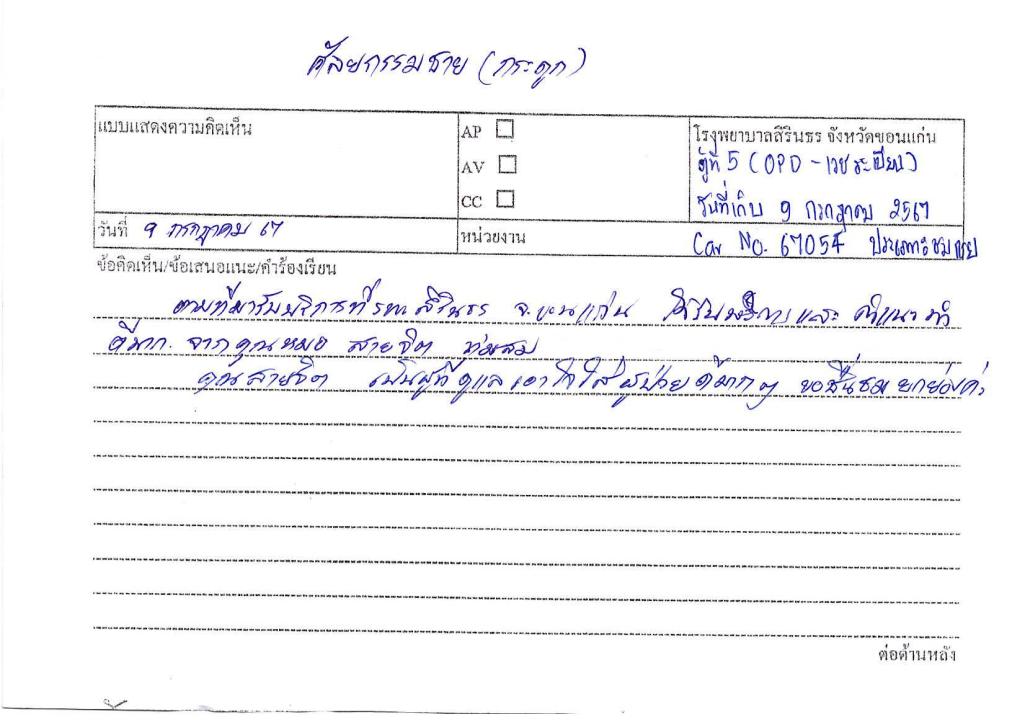 ศัลยกรรมชาย (กระดูก)
แบบแสดงความคิดเห็น
AP
AV
CC
โรงพยาบาลสิรินธร จังหวัดขอนแก่น
ตู้ที่ 5 (OPD - เวชระเบียน)
วันที่เก็บ 9 กรกฎาคม 2567
วันที่ 9 กรกฎาคม 67
หน่วยงาน
Car No. 67054 ประเภท ชมเชย
ข้อคิดเห็น/ข้อเสนอแนะ/คำร้องเรียน
ตามที่มารับบริการที่ รพ. สิรินธร จ.ขอนแก่น ได้รับบริการและ คำแนะนำ
ดีมาก. จากคุณหมอ สายจิต
คุณสายจิต เป็นผู้ที่ดูแลเอาใจใส่ผู้ป่วยดีมากๆ ขอชื่นชมยกย่องค่ะ
ต่อด้านหลัง